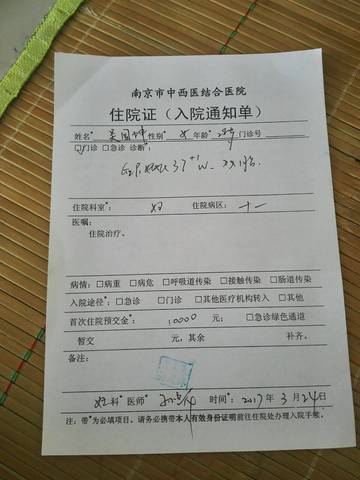 南京市中西医结合医院
住院证（入院通知单）
姓名* 性别* 女 年龄* 门诊号
☑门诊 □急诊 诊断*
37⁺¹w
住院科室*： 妇 住院病区： 十一
医嘱：
住院治疗。
病情：□病重 □病危 □呼吸道传染 □接触传染 □肠道传染
入院途径*：□急诊 □门诊 □其他医疗机构转入 □其他
首次住院预交金*： 10000 元； □急诊绿色通道
暂交 元，其余 补齐。
备注：
妇科*医师* 时间*： 2017年 3月 24日
注：带*为必填项目。请务必携带本人有效身份证明前往住院处办理入院手续。